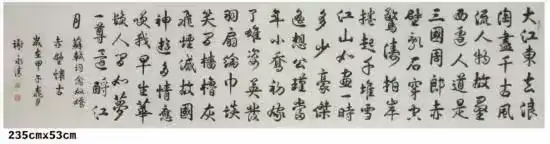 大江東去浪
淘盡千古風
流人物故壘
西邊人道是
三國周郎赤
壁亂石穿空
驚濤拍岸
捲起千堆雪
江山如畫一時
多少豪傑
遙想公瑾當
年小喬初嫁
了雄姿英發
羽扇綸巾談
笑間檣櫓灰
飛煙滅故國
神遊多情應
笑我早生華
髮人間如夢
一尊還酹江
月
蘇軾詞念奴嬌
赤壁懷古
歲在甲午
235cmx53cm